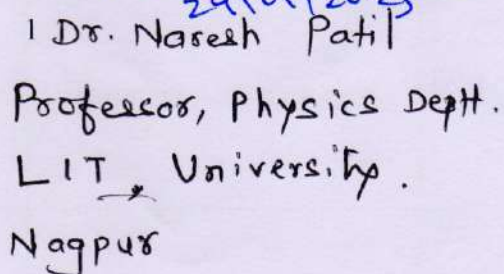 1 Dr. Naresh Patil
Professor, Physics Deptt.
LIT, University.
Nagpur